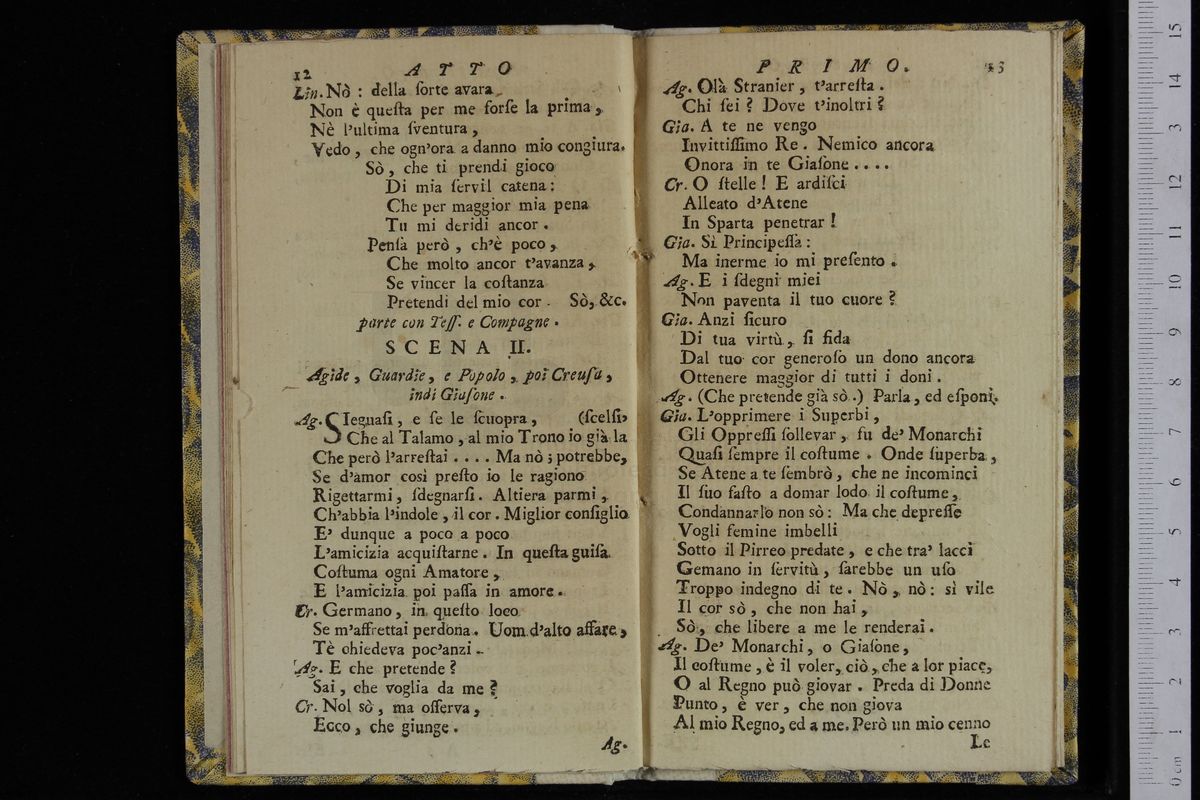 12 ATTO
Lin. Nò : della ſorte avara
Non è queſta per me forſe la prima,
Nè l'ultima ſventura,
Vedo, che ogn'ora a danno mio congiura.
Sò, che ti prendi gioco
Di mia ſervil catena:
Che per maggior mia pena
Tu mi deridi ancor.
Penſa però, ch'è poco,
Che molto ancor t'avanza,
Se vincer la coſtanza
Pretendi del mio cor. Sò, &c.
parte con Teſſ. e Compagne.
SCENA II.
Agide, Guardie, e Popolo, poi Creuſa,
indi Giaſone.
Ag. SIeguaſi, e ſe le ſcuopra, (ſcelſi,
Che al Talamo, al mio Trono io già la
Che però l'arreſtai .... Ma nò; potrebbe,
Se d'amor così preſto io le ragiono
Rigettarmi, ſdegnarſi. Altiera parmi,
Ch'abbia l'indole, il cor. Miglior conſiglio
E' dunque a poco a poco
L'amicizia acquiſtarne. In queſta guiſa
Coſtuma ogni Amatore,
E l'amicizia poi paſſa in amore.
Cr. Germano, in queſto loco
Se m'affrettai perdona. Uom d'alto affare,
Tè chiedeva poc'anzi.
Ag. E che pretende?
Sai, che voglia da me?
Cr. Nol sò, ma oſſerva,
Ecco, che giunge.
Ag.
PRIMO. 13
Ag. Olà Stranier, t'arreſta.
Chi ſei? Dove t'inoltri?
Gia. A te ne vengo
Invittiſſimo Re. Nemico ancora
Onora in te Giaſone ....
Cr. O ſtelle! E ardiſci
Alleato d'Atene
In Sparta penetrar!
Gia. Sì Principeſſa:
Ma inerme io mi preſento.
Ag. E i ſdegni miei
Non paventa il tuo cuore?
Gia. Anzi ſicuro
Di tua virtù, ſi fida
Dal tuo cor generoſo un dono ancora
Ottenere maggior di tutti i doni.
Ag. (Che pretende già sò.) Parla, ed eſponi.
Gia. L'opprimere i Superbi,
Gli Oppreſſi ſollevar, fu de' Monarchi
Quaſi ſempre il coſtume. Onde ſuperba,
Se Atene a te ſembrò, che ne incominci
Il ſuo faſto a domar lodo il coſtume,
Condannarlo non sò: Ma che depreſſe
Vogli femine imbelli
Sotto il Pirreo predate, e che tra' lacci
Gemano in ſervitù, ſarebbe un uſo
Troppo indegno di te. Nò, nò: sì vile
Il cor sò, che non hai,
Sò, che libere a me le renderai.
Ag. De' Monarchi, o Giaſone,
Il coſtume, è il voler, ciò, che a lor piace,
O al Regno può giovar. Preda di Donne
Punto, è ver, che non giova
Al mio Regno, ed a me. Però un mio cenno
Le
0 cm 1 2 3 4 5 6 7 8 9 10 11 12 13 14 15